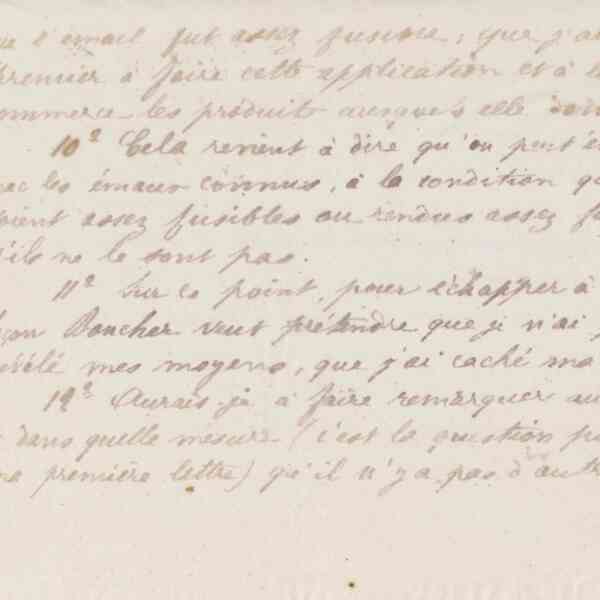 l'émail fut assez fusible, que j'ai
premier à faire cette application et à l
commerce les produits auxquels elle don
10º Cela revient à dire qu'on peut é
les émaux connus, à la condition q
soient assez fusibles ou rendus assez f
s'ils ne le sont pas.
11º Sur ce point, pour échapper à
Boucher veut prétendre que je n'ai p
révélé mes moyens, que j'ai caché ma
12º Aurais-je à faire remarquer au
dans quelle mesure (c'est la question p
ma première lettre) qu'il n'y a pas d'autr